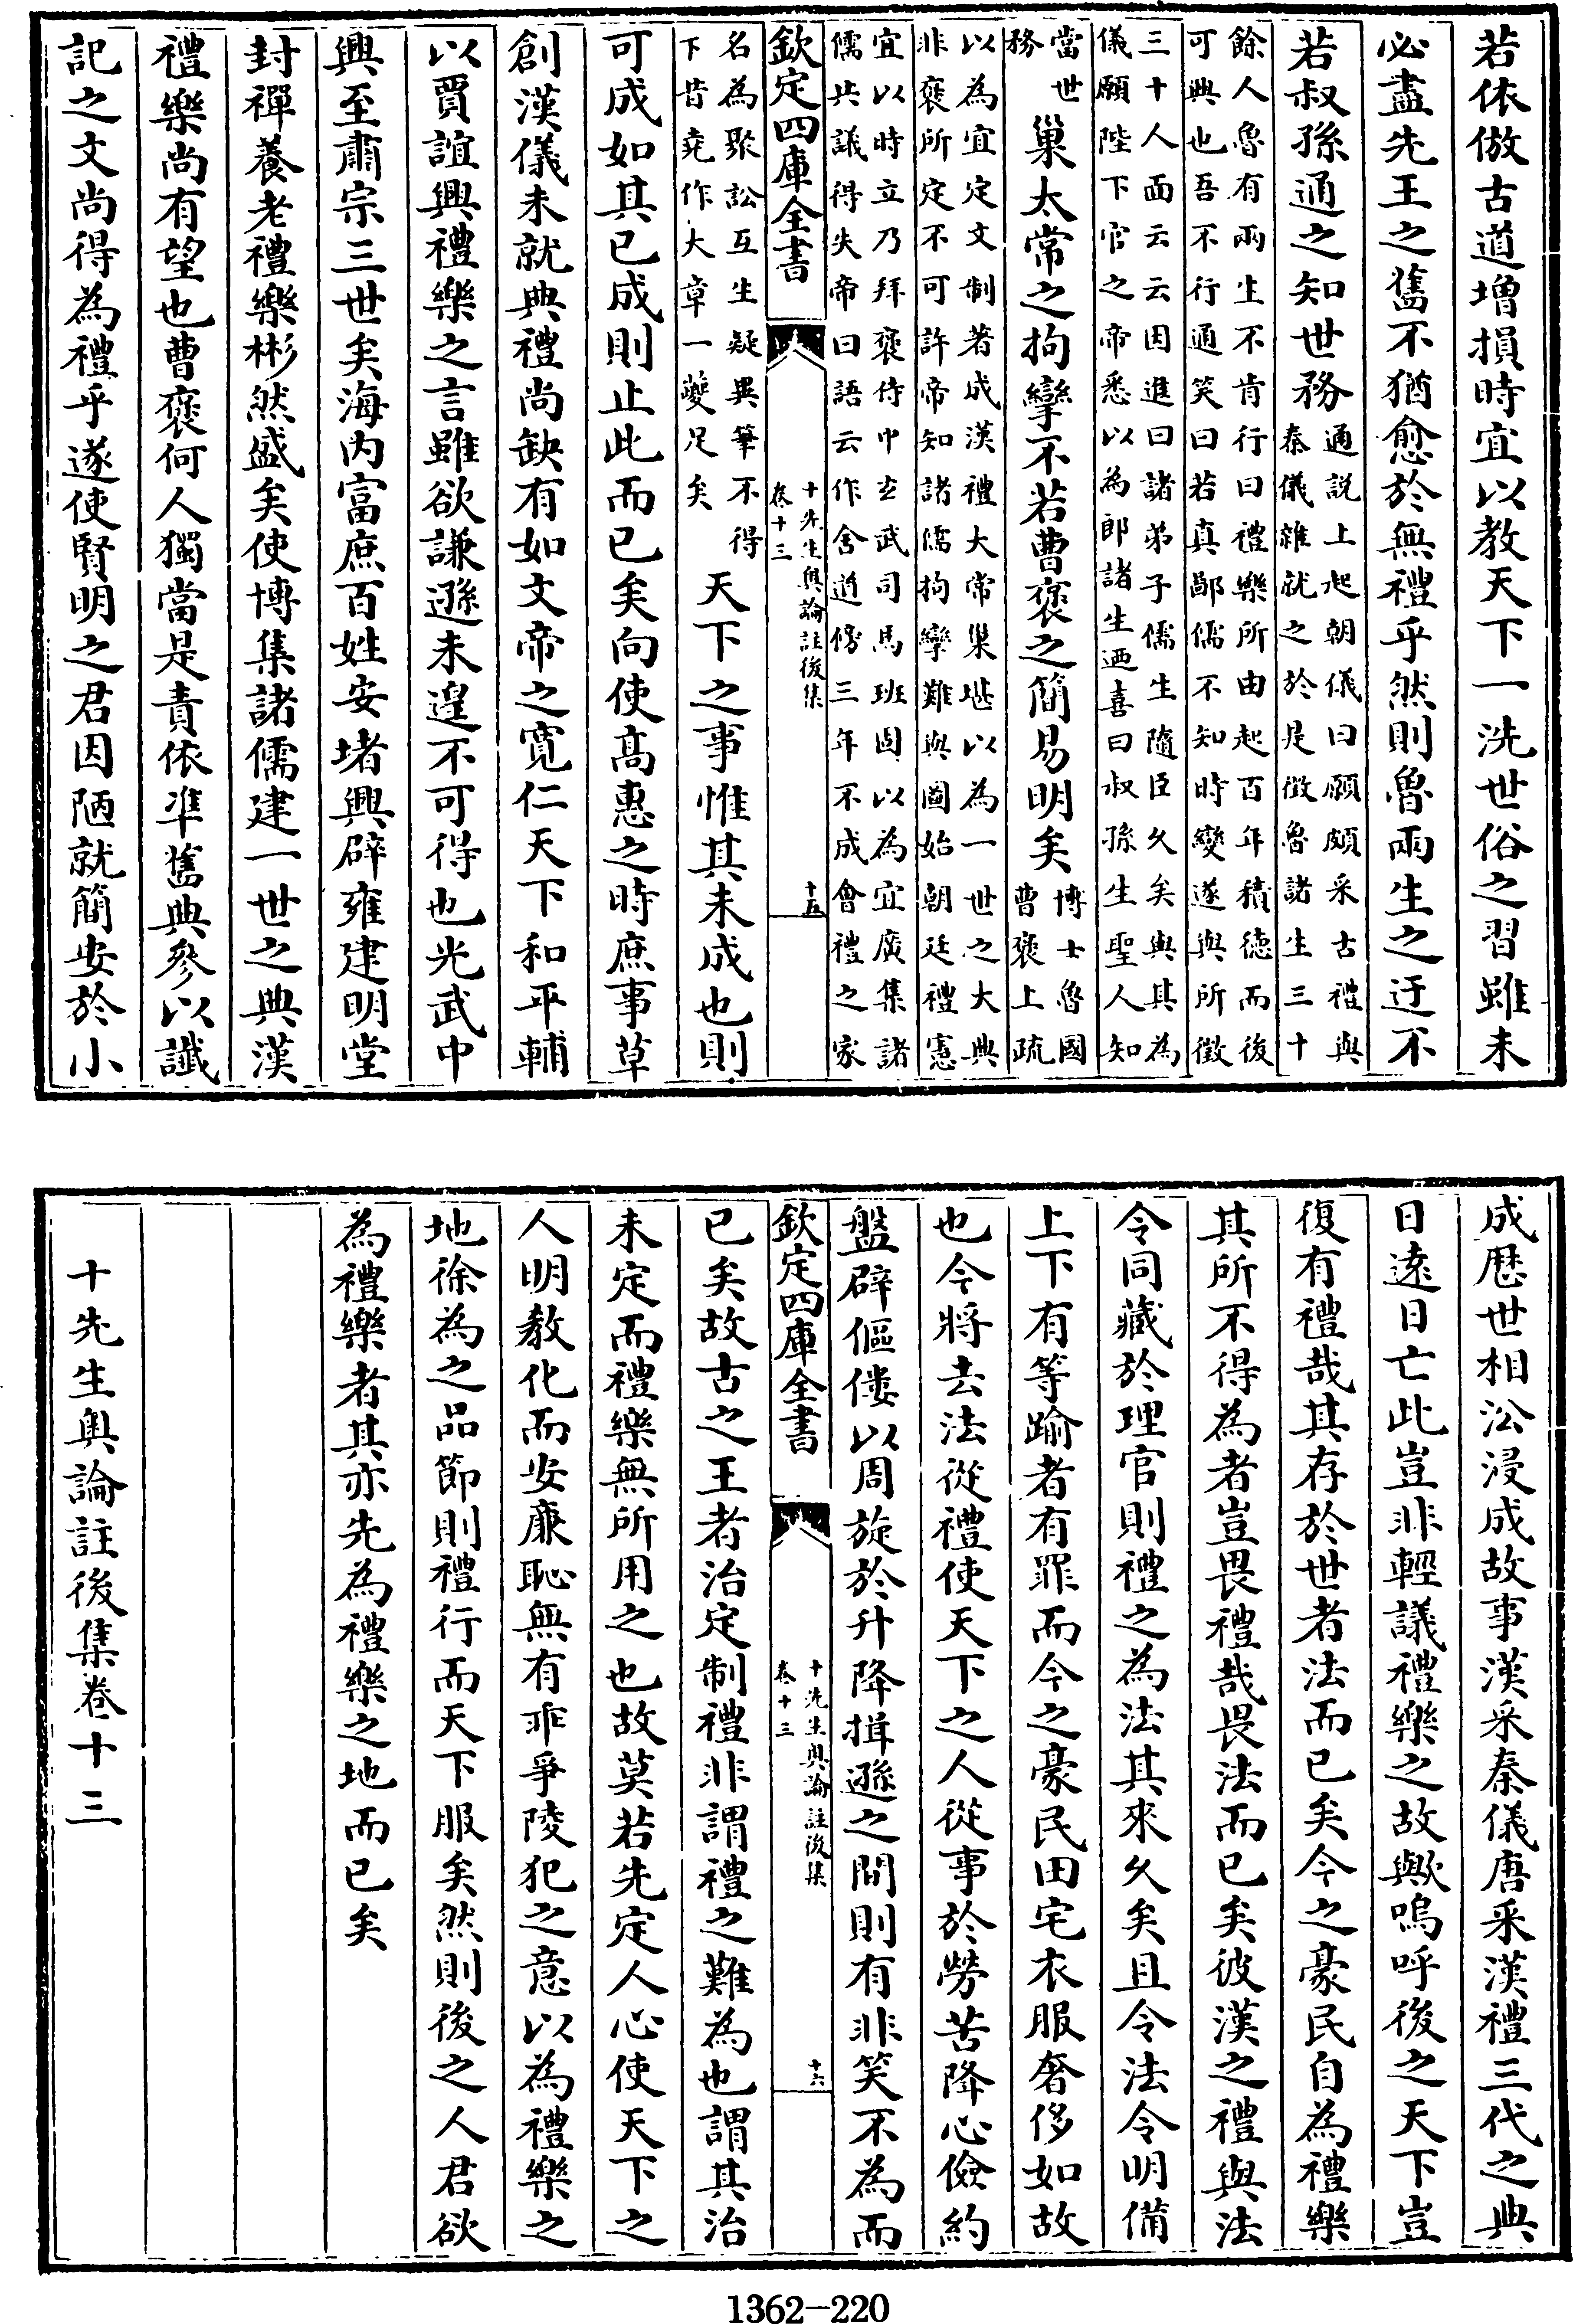 若依倣古道增損時宜以教天下一洗世俗之習雖未
必盡先王之舊不猶愈於無禮乎然則魯兩生之迂不
若叔孫通之知世務通說上起朝儀曰願頗采古禮與
秦儀雜就之於是徵魯諸生三十
餘人魯有兩生不肯行曰禮樂所由起百年積德而後
可興也吾不行通笑曰若真鄙儒不知時變遂與所徵
三十人面云云因進曰諸弟子儒生隨臣久矣與其為
儀願陛下官之帝悉以為郎諸生迺喜曰叔孫生聖人知
當世
務
巢太常之拘攣不若曹褒之簡易明矣博士魯國
曹褒上疏
以為宜定文制著成漢禮大常巢堪以為一世之大典
非褒所定不可許帝知諸儒拘攣難與圖始朝廷禮憲
宜以時立乃拜褒侍中玄武司馬班固以為宜廣集諸
儒共議得失帝曰語云作舍道傍三年不成會禮之家
欽定四庫全書
十先生奧論註後集
卷十三
十五
名為聚訟互生疑異筆不得
下昔堯作大章一夔足矣
天下之事惟其未成也則
可成如其已成則止此而已矣向使高惠之時庶事草
創漢儀未就典禮尚缺有如文帝之寬仁天下和平輔
以賈誼興禮樂之言雖欲謙遜未遑不可得也光武中
興至肅宗三世矣海內富庶百姓安堵興辟雍建明堂
封禪養老禮樂彬然盛矣使博集諸儒建一世之典漢
禮樂尚有望也曹褒何人獨當是責依準舊典參以讖
記之文尚得為禮乎遂使賢明之君因陋就簡安於小
成歷世相沿浸成故事漢采秦儀唐采漢禮三代之典
日遠日亡此豈非輕議禮樂之故歟嗚呼後之天下豈
復有禮哉其存於世者法而已矣今之豪民自為禮樂
其所不得為者豈畏禮哉畏法而已矣彼漢之禮與法
令同藏於理官則禮之為法其來久矣且令法令明備
上下有等踰者有罪而今之豪民田宅衣服奢侈如故
也今將去法從禮使天下之人從事於勞苦降心儉約
盤辟傴僂以周旋於升降揖遜之間則有非笑不為而
欽定四庫全書
十先生奧論註後集
卷十三
十六
已矣故古之王者治定制禮非謂禮之難為也謂其治
未定而禮樂無所用之也故莫若先定人心使天下之
人明教化而安廉恥無有乖爭陵犯之意以為禮樂之
地徐為之品節則禮行而天下服矣然則後之人君欲
為禮樂者其亦先為禮樂之地而已矣
十先生奧論註後集卷十三
1362-220